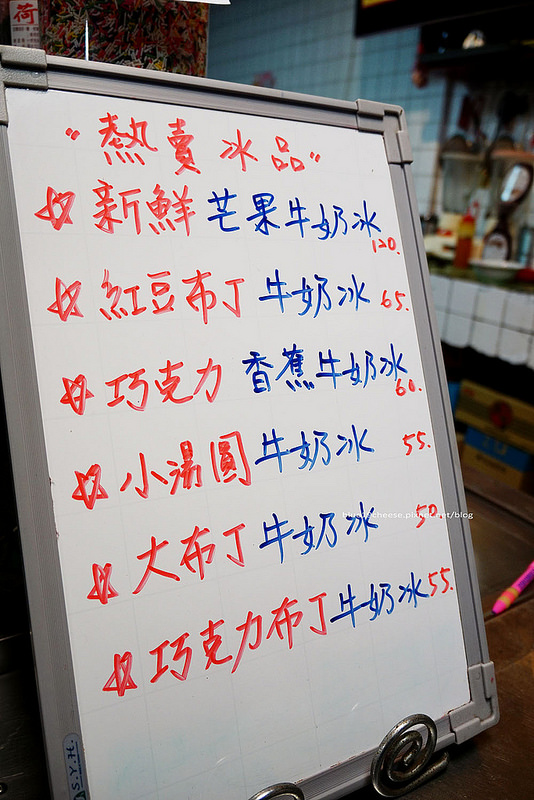 荷
"熱賣冰品"
☆新鮮芒果牛奶冰 120.
☆紅豆布丁 牛奶冰 65.
☆巧克力 香蕉牛奶冰 60.
☆小湯圓牛奶冰 55.
☆大布丁牛奶冰 50
☆巧克力布丁牛奶冰 55.
S.Y.H.